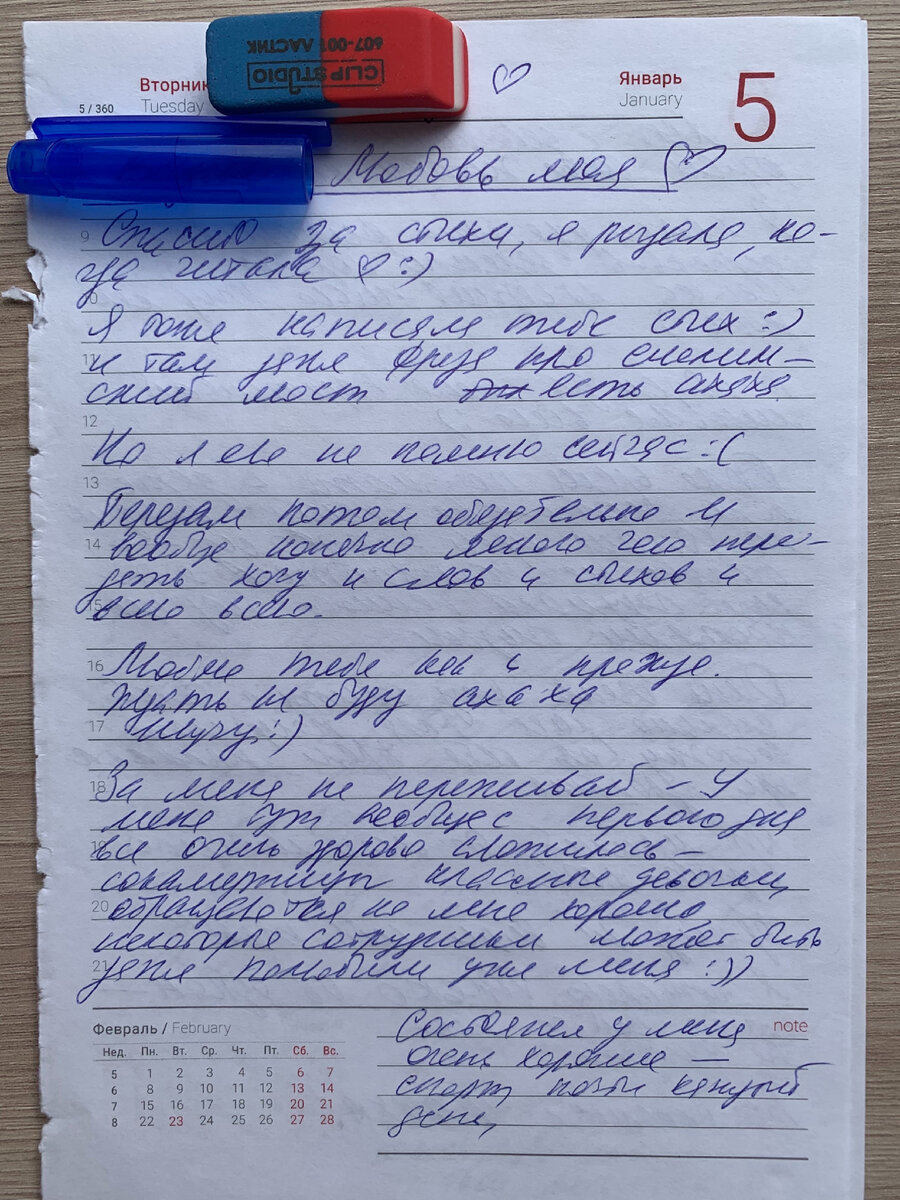 607-001 ЛАСТИК
CLIP STUDIO
Вторник
Январь
5
5 / 360
Tuesday
January
Любовь моя ♡
9
Спасибо за стихи, я рыдала, ко-
гда читала ♡ :)
10
Я тоже написала тебе стих :)
11
и там даже фраза про
ский мост есть ахаха.
12
Но я его не помню сейчас :(
13
Передам потом обязательно и
14
вообще конечно много чего пере-
дать хочу и слов и стихов и
15
всего всего.
16
Люблю тебя как и прежде.
Ждать не буду ахаха
17
шучу :)
18
За меня не переживай – у
меня тут вообще с первого дня
19
все очень здорово сложилось –
сокамерницы классные девочки,
20
обращаются ко мне хорошо,
некоторые сотрудники может быть
21
даже полюбили уже меня :))
Февраль / February
Нед. Пн. Вт. Ср. Чт. Пт. Сб. Вс.
5 1 2 3 4 5 6 7
6 8 9 10 11 12 13 14
7 15 16 17 18 19 20 21
8 22 23 24 25 26 27 28
note
Состояние у меня
очень хорошее —
спорт почти каждый
день,